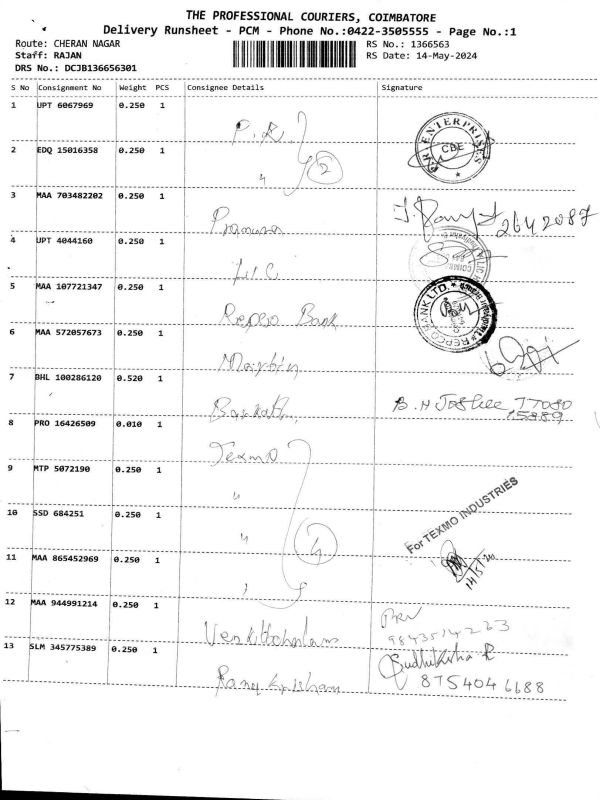 THE PROFESSIONAL COURIERS, COIMBATORE
Delivery Runsheet - PCM - Phone No.:0422-3505555 - Page No.:1
Route: CHERAN NAGAR RS No.: 1366563
Staff: RAJAN RS Date: 14-May-2024
DRS No.: DCJB136656301
S No Consignment No Weight PCS Consignee Details Signature
1 UPT 6067969 0.250 1 P.R. ENTERPRISES CBE
2 EDQ 15016358 0.250 1 " 2
3 MAA 703482202 0.250 1 2642087
4 UPT 4044160 0.250 1 LIC
5 MAA 107721347 0.250 1 Repco Bank REPCO BANK LTD.
6 MAA 572057673 0.250 1 Martin
7 BHL 100286120 0.520 1 B.H
8 PRO 16426509 0.010 1 Texmo
9 MTP 5072190 0.250 1 "
10 SSD 684251 0.250 1 " 4 For TEXMO INDUSTRIES
11 MAA 865452969 0.250 1
12 MAA 944991214 0.250 1
13 SLM 345775389 0.250 1 Sudhiksha R
8754046688